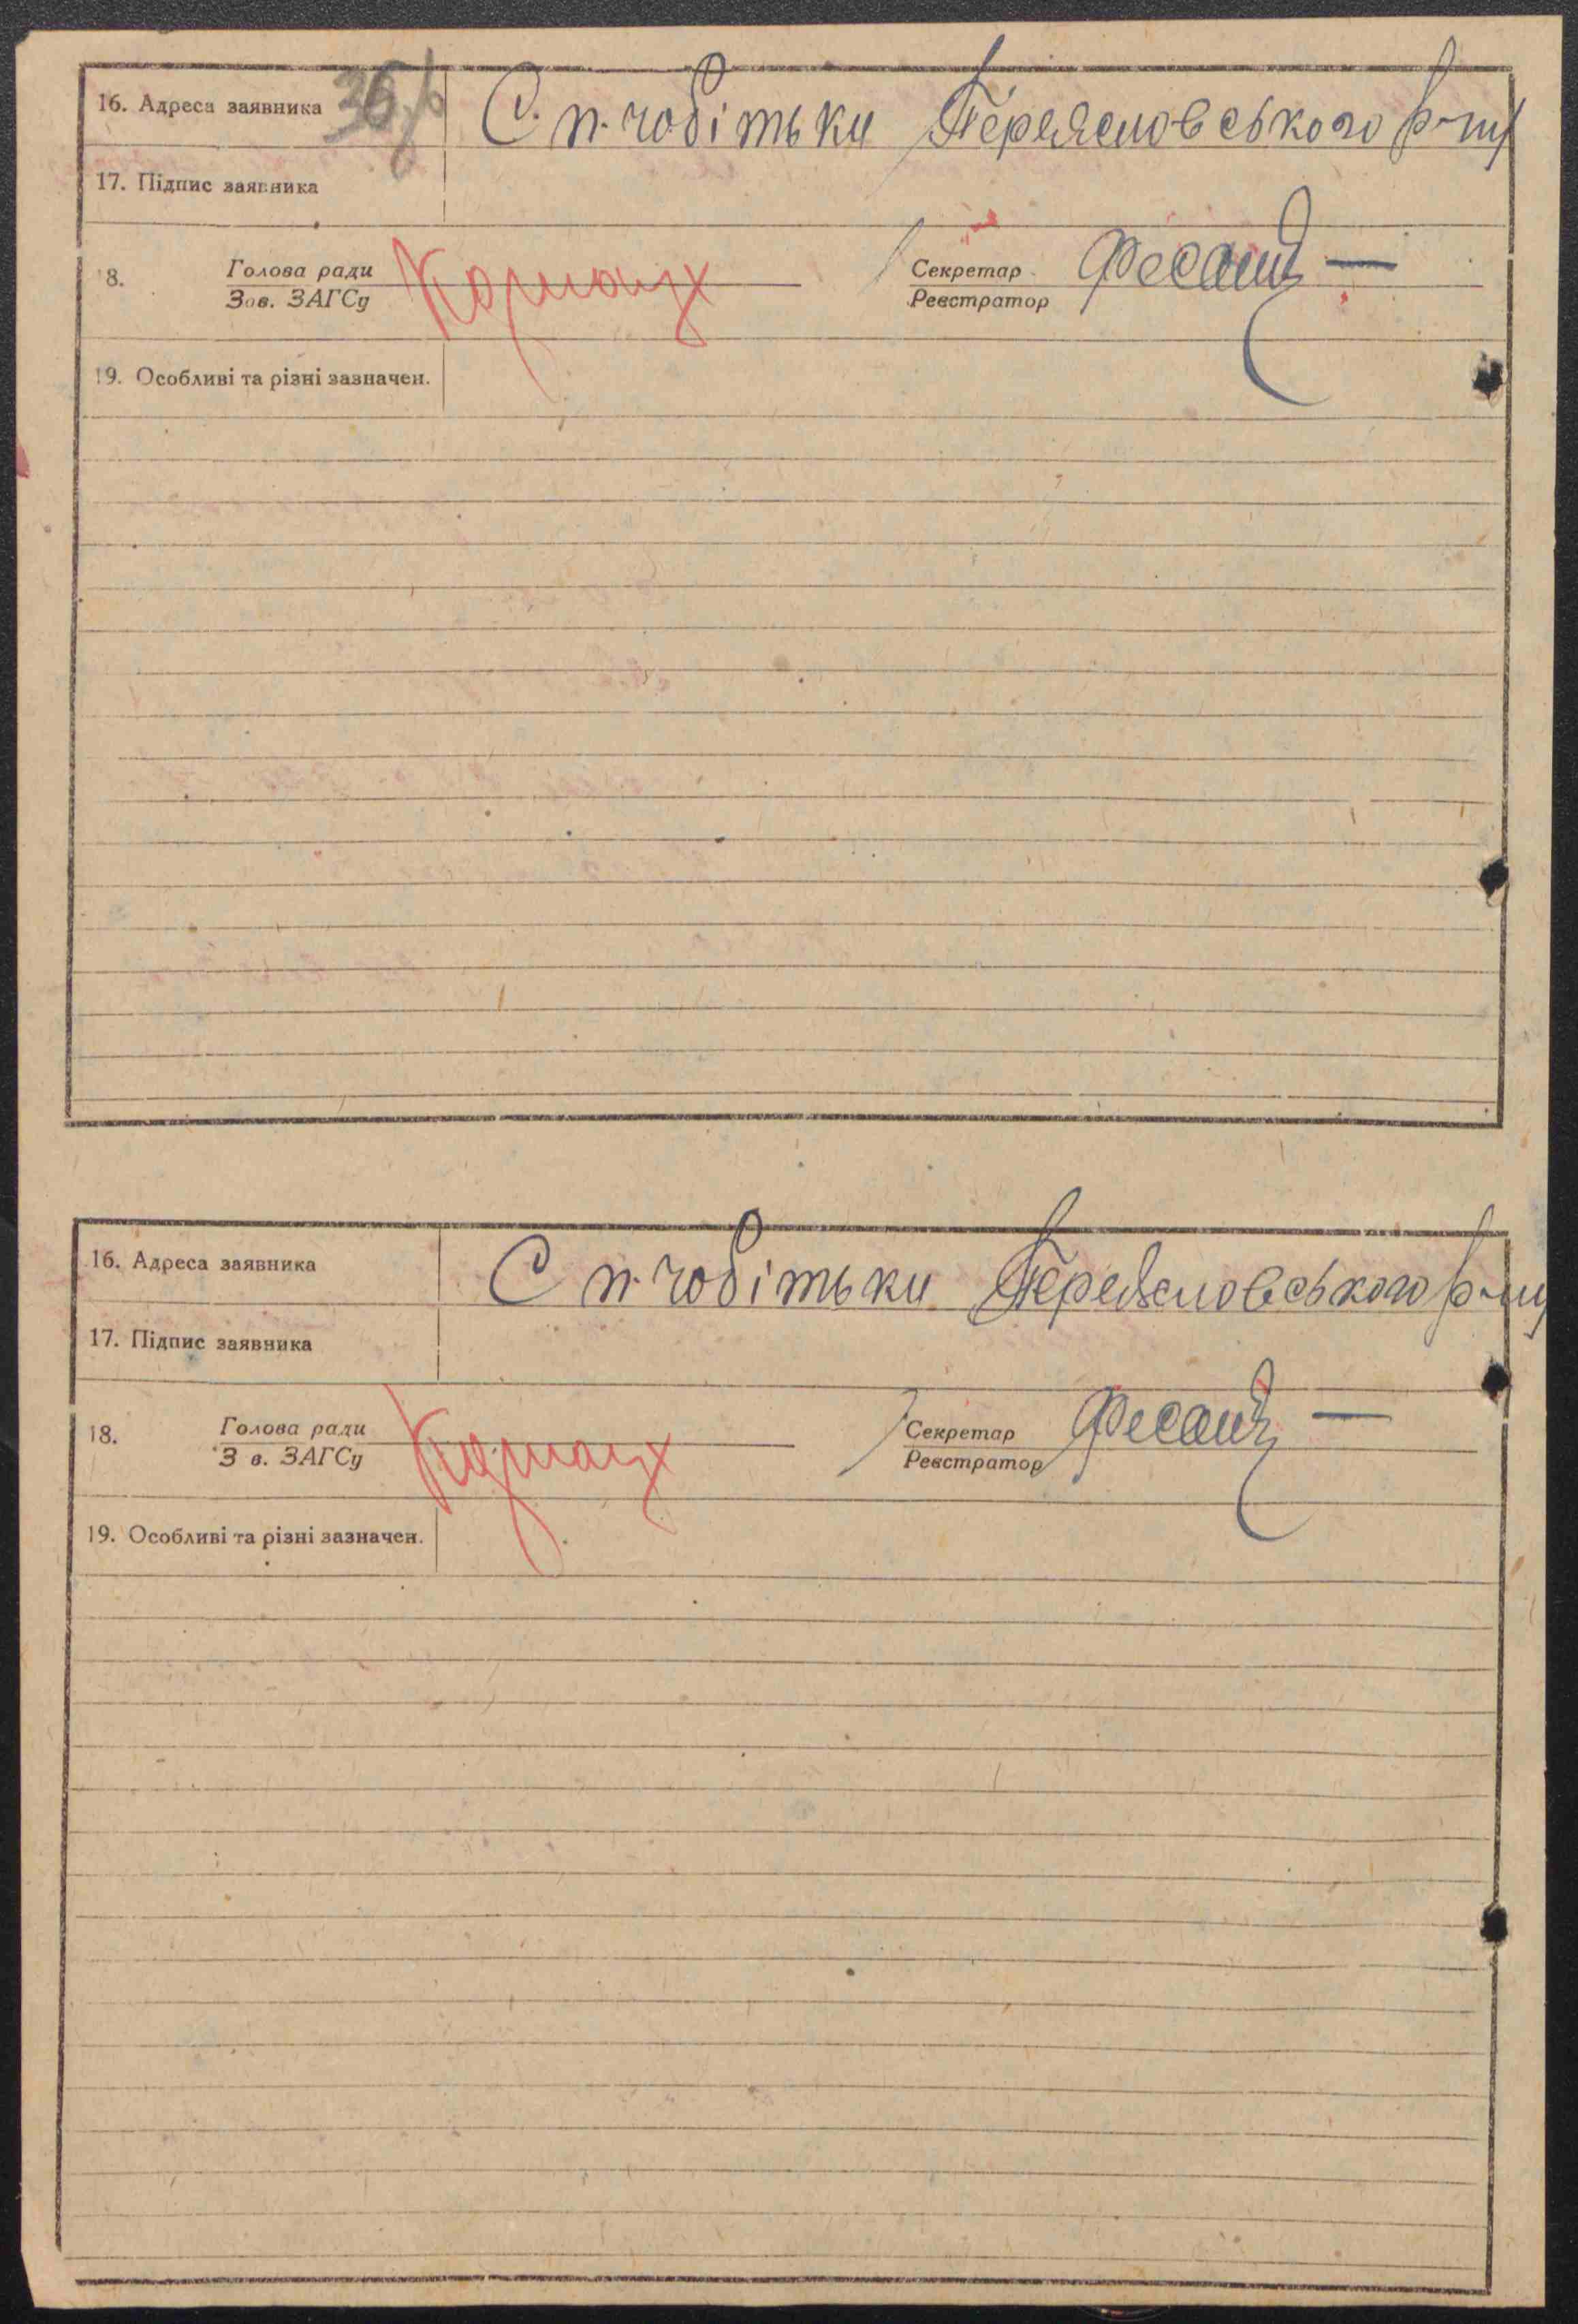 16. Адреса заявника С. п. чобітьки Переясловського р-ну
17. Підпис заявника
18. Голова ради Секретар
Зав. ЗАГСу Реєстратор
19. Особливі та різні зазначен.
16. Адреса заявника С п. чобітьки Переясловського р-ну
17. Підпис заявника
18. Голова ради Секретар
З в. ЗАГСу Реєстратор
19. Особливі та різні зазначен.